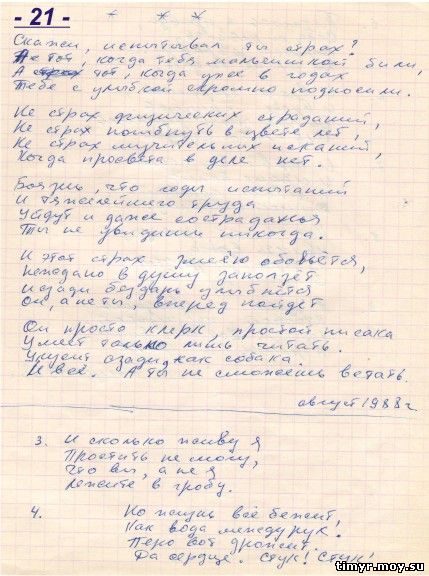 - 21 -
* * *
Скажи, испытывал ты страх?
Не тот, когда тебя мальчишкой били,
А страх тот, когда уже в годах
Тебе с улыбкой скромно подносили.
Не страх физических страданий,
Не страх погибнуть в цвете лет,
Не страх мучительных исканий,
Когда просвета в деле нет.
Боязнь, что годы испытаний
И тяжелейшего труда
Уйдут и даже состраданья
Ты не увидишь никогда.
И этот страх змеёю обовьётся,
Нежданно в душу заползёт
И сзади бездарь улыбнётся
Он, а не ты, вперёд пойдёт
Он просто клерк, простой писака
Умеет только лишь читать.
Укусит сзади, как собака
И всё. А ты не сможешь встать.
август 1988г.
3. И сколько живу я
Простить не могу,
Что вы, а не я
Лежите в гробу.
4. Но жизнь всё бежит
Как вода между рук!
Перо вот дрожит
Да сердце. Стук! Стук!
timyr.moy.su